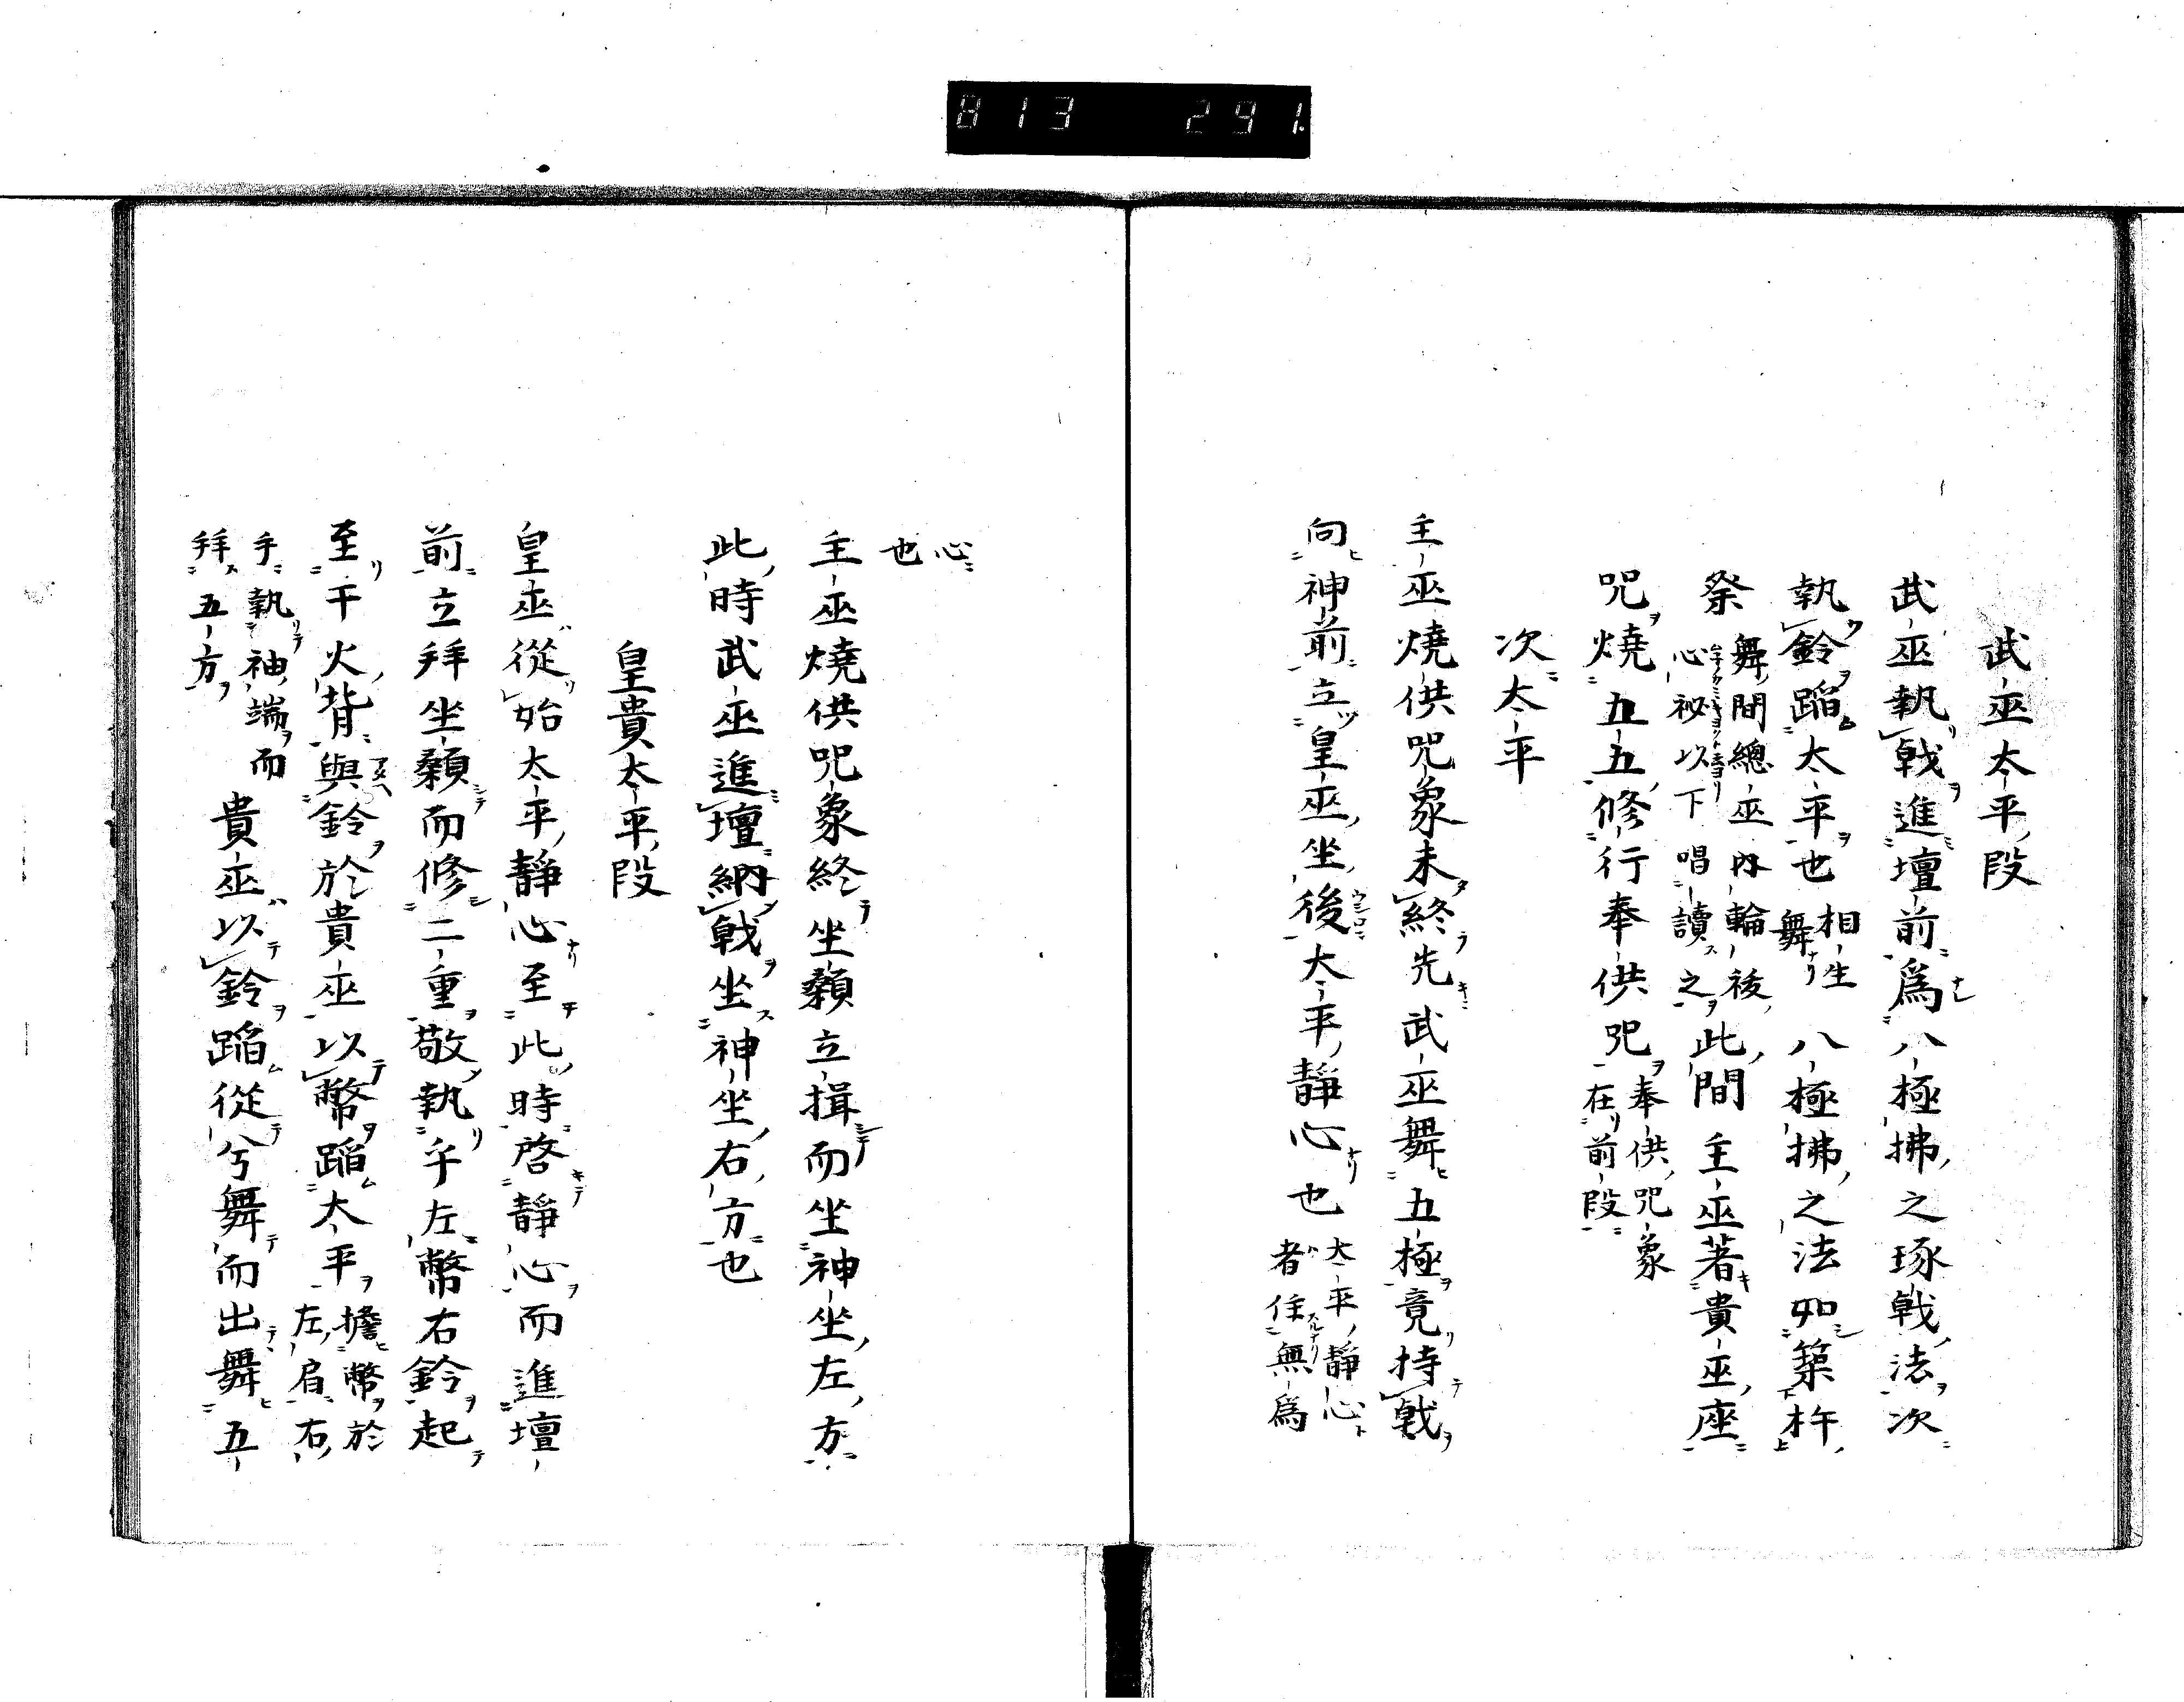 813 291
武巫太平段
武巫執戟進壇前為八極拂之琢戟法次
執鈴蹈太平也相生舞八極拂之法如築杵
祭舞間總巫内輪後心祕以下唱讀之此間主巫著貴巫座
咒燒五五修行奉供咒奉供咒象在前段
次太平
主巫燒供咒象未終先武巫舞五極竟持戟
向神前立皇巫坐後太平靜心也太平靜心者任無為
心也
主巫燒供咒象終坐顙立揖而坐神坐左方
此時武巫進壇納戟坐神坐右方也
皇貴太平段
皇巫從始太平靜心至此時啓靜心而進壇
前立拜坐顙而修二重敬執乎左幣右鈴起
至干火背與鈴於貴巫以幣蹈太平擔幣於左肩右
手執袖端而拜五方貴巫以鈴蹈從兮舞而出舞五